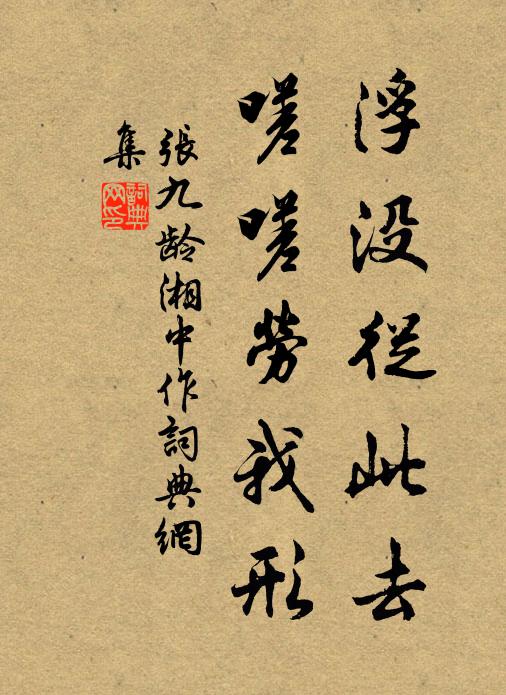 浮没從此去
嗟嗟勞我形
張九龄湘中作詞典網
集
詞典
网印